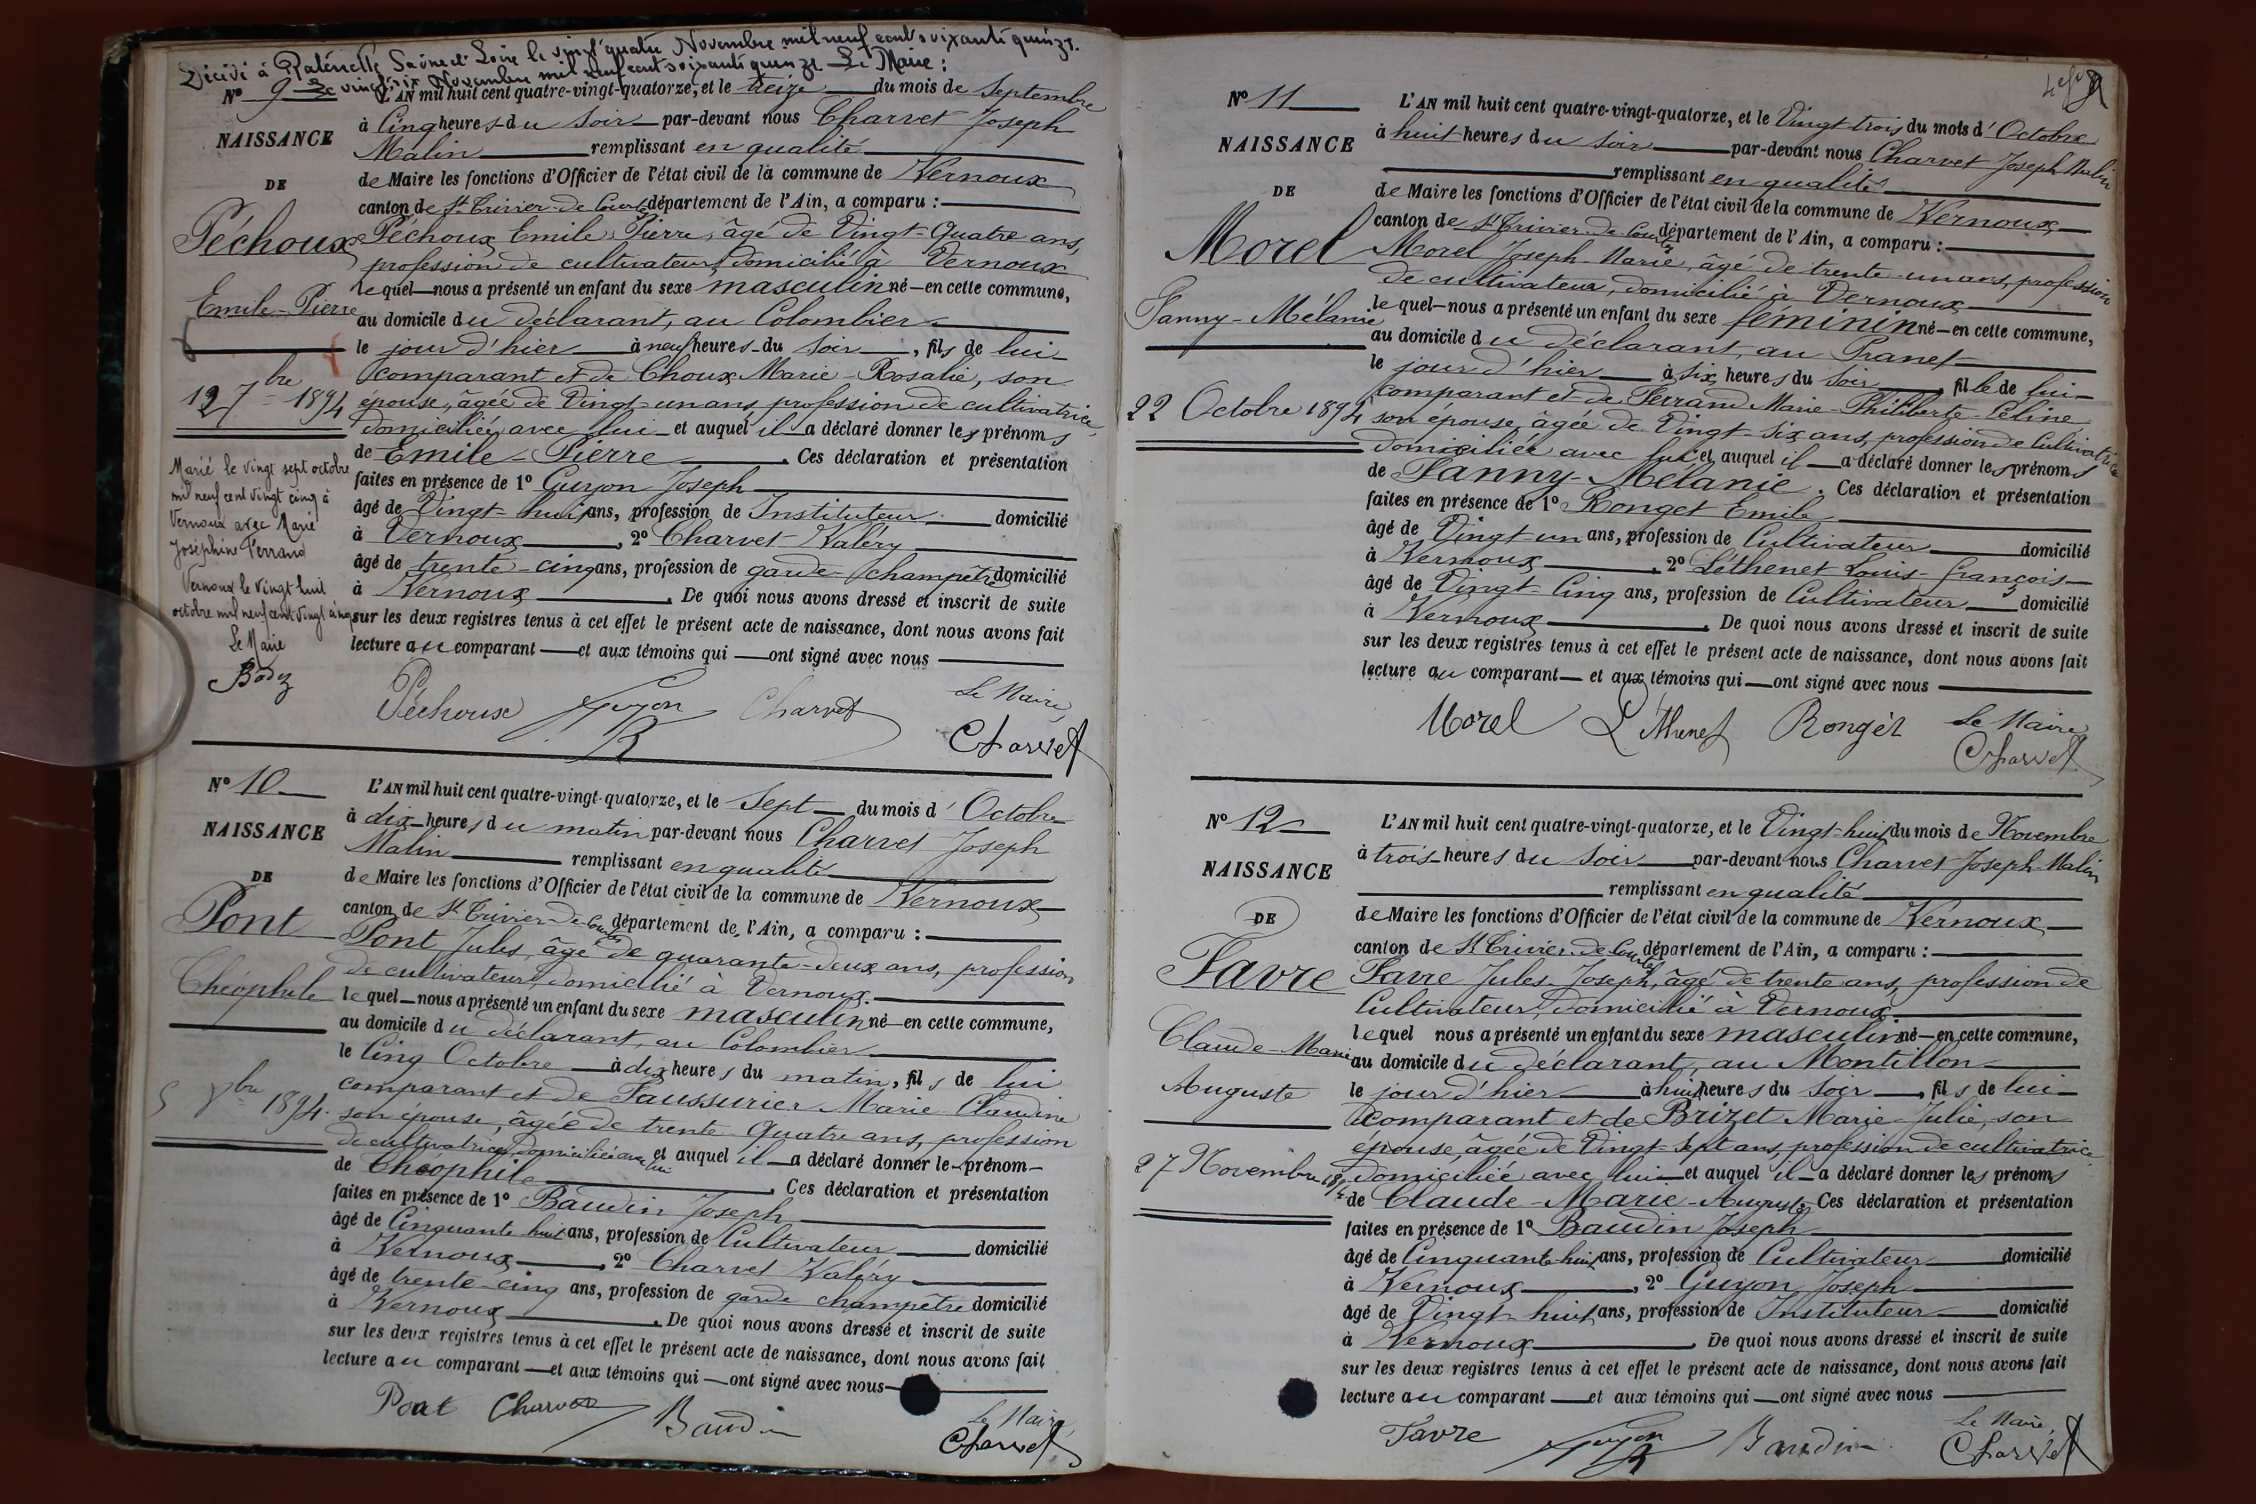 Décédé à Ratenelle Saône et Loire le vingt quatre Novembre mil neuf cent soixante quinze.
Le vingt six Novembre mil neuf cent soixante quinze Le Maire :
N° 9
NAISSANCE
DE
Péchoux
Emile-Pierre
12 7bre 1894
Marié le vingt sept octobre
mil neuf cent vingt cinq à
Vernoux avec Marie
Joséphine Ferrand
Vernoux le vingt huit
octobre mil neuf cent vingt cinq
Le Maire
Bodez
L'AN mil huit cent quatre-vingt-quatorze, et le treize du mois de Septembre
à Cinq heures du Soir par-devant nous Charvet Joseph
Malin remplissant en qualité
de Maire les fonctions d'Officier de l'état civil de la commune de Vernoux
canton de St Trivier-de Courtes département de l'Ain, a comparu :
Péchoux Emile Pierre, âgé de Vingt-Quatre ans,
profession de cultivateur, domicilié à Vernoux
le quel nous a présenté un enfant du sexe masculin né en cette commune,
au domicile du déclarant, au Colombier
le jour d'hier à neuf heures du Soir, fils de lui
comparant et de Choux Marie-Rosalie, son
épouse, âgée de Vingt-un ans, profession de cultivatrice,
domiciliée avec lui et auquel il a déclaré donner les prénoms
de Emile-Pierre. Ces déclaration et présentation
faites en présence de 1° Guyon Joseph
âgé de Vingt-huit ans, profession de Instituteur domicilié
à Vernoux, 2° Charvet Valéry
âgé de trente-cinq ans, profession de garde-champêtre domicilié
à Vernoux. De quoi nous avons dressé et inscrit de suite
sur les deux registres tenus à cet effet le présent acte de naissance, dont nous avons fait
lecture au comparant et aux témoins qui ont signé avec nous
Péchoux Guyon Charvet Le Maire,
Charvet
N° 10
NAISSANCE
DE
Pont
Théophile
5 8bre 1894.
L'AN mil huit cent quatre-vingt-quatorze, et le Sept du mois d'Octobre
à dix heures du matin par-devant nous Charvet Joseph
Malin remplissant en qualité
de Maire les fonctions d'Officier de l'état civil de la commune de Vernoux
canton de St Trivier-de-Courtes département de l'Ain, a comparu :
Pont Jules, âgé de quarante-deux ans, profession
de cultivateur, domicilié à Vernoux.
le quel nous a présenté un enfant du sexe masculin né en cette commune,
au domicile du déclarant, au Colombier
le Cinq Octobre à dix heures du matin, fils de lui
comparant et de Faussurier Marie Claudine
son épouse, âgée de trente-Quatre ans, profession
de cultivatrice, domiciliée avec lui et auquel il a déclaré donner le prénom
de Théophile. Ces déclaration et présentation
faites en présence de 1° Baudin Joseph
âgé de Cinquante huit ans, profession de Cultivateur domicilié
à Vernoux, 2° Charvet Valéry
âgé de trente-cinq ans, profession de garde champêtre domicilié
à Vernoux. De quoi nous avons dressé et inscrit de suite
sur les deux registres tenus à cet effet le présent acte de naissance, dont nous avons fait
lecture au comparant et aux témoins qui ont signé avec nous
Pont Charvet Baudin Le Maire,
Charvet
N° 11
NAISSANCE
DE
Morel
Fanny-Mélanie
22 Octobre 1894
L'AN mil huit cent quatre-vingt-quatorze, et le Vingt-trois du mois d'Octobre
à huit heures du Soir par-devant nous Charvet Joseph Malin
remplissant en qualité
de Maire les fonctions d'Officier de l'état civil de la commune de Vernoux
canton de St Trivier-de Courtes département de l'Ain, a comparu :
Morel Joseph-Marie, âgé de trente-un ans, profession
de cultivateur, domicilié à Vernoux
le quel nous a présenté un enfant du sexe féminin né en cette commune,
au domicile du déclarant, au Pranet
le jour d'hier à six heures du Soir, fille de lui
comparant et de Ferrand Marie-Philiberte-Céline
son épouse, âgée de Vingt-Six ans, profession de Cultivatrice
domiciliée avec lui et auquel il a déclaré donner les prénoms
de Fanny-Mélanie. Ces déclaration et présentation
faites en présence de 1° Ronget Emile
âgé de Vingt-un ans, profession de Cultivateur domicilié
à Vernoux, 2° Léthenet Louis-François
âgé de Vingt-Cinq ans, profession de Cultivateur domicilié
à Vernoux. De quoi nous avons dressé et inscrit de suite
sur les deux registres tenus à cet effet le présent acte de naissance, dont nous avons fait
lecture au comparant et aux témoins qui ont signé avec nous
Morel Léthenet Ronget Le Maire
Charvet
N° 12
NAISSANCE
DE
Favre
Claude-Marie
Auguste
27 Novembre 1894
L'AN mil huit cent quatre-vingt-quatorze, et le Vingt-huit du mois de Novembre
à trois heures du Soir par-devant nous Charvet Joseph-Malin
remplissant en qualité
de Maire les fonctions d'Officier de l'état civil de la commune de Vernoux
canton de St Trivier-de Courtes département de l'Ain, a comparu :
Favre Jules-Joseph, âgé de trente ans, profession de
Cultivateur, domicilié à Vernoux
le quel nous a présenté un enfant du sexe masculin né en cette commune,
au domicile du déclarant, au Montillon
le jour d'hier à huit heures du Soir, fils de lui
comparant et de Brizet Marie-Julie, son
épouse, âgée de Vingt-Sept ans, profession de cultivatrice,
domiciliée avec lui et auquel il a déclaré donner les prénoms
de Claude-Marie-Auguste. Ces déclaration et présentation
faites en présence de 1° Baudin Joseph
âgé de Cinquante-huit ans, profession de Cultivateur domicilié
à Vernoux, 2° Guyon Joseph
âgé de Vingt-huit ans, profession de Instituteur domicilié
à Vernoux. De quoi nous avons dressé et inscrit de suite
sur les deux registres tenus à cet effet le présent acte de naissance, dont nous avons fait
lecture au comparant et aux témoins qui ont signé avec nous
Favre Guyon Baudin Le Maire,
Charvet